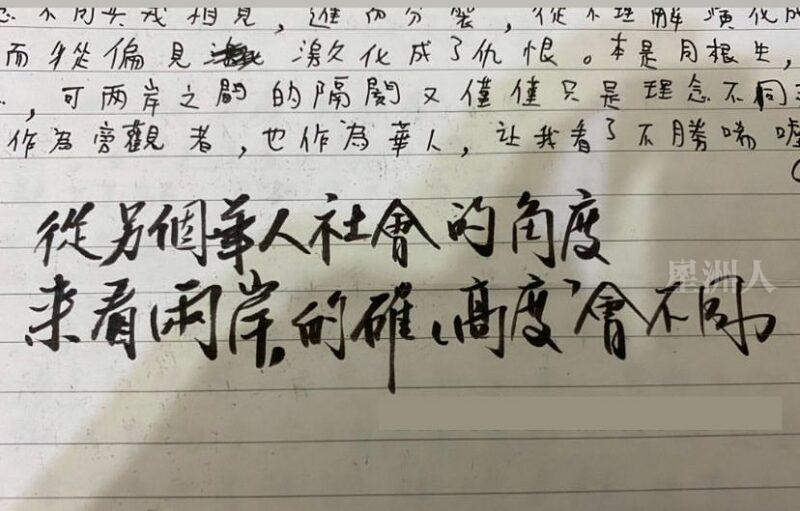 不同兵戎相見，進而分裂，從不理解演化成
而從偏見 激化成了仇恨。本是同根生，
，可兩岸之間的隔閡又僅僅只是理念不同
作為旁觀者，也作為華人，让我看了不勝唏噓
從另個華人社會的角度
來看兩岸，的確，「高度」會不同
星洲人